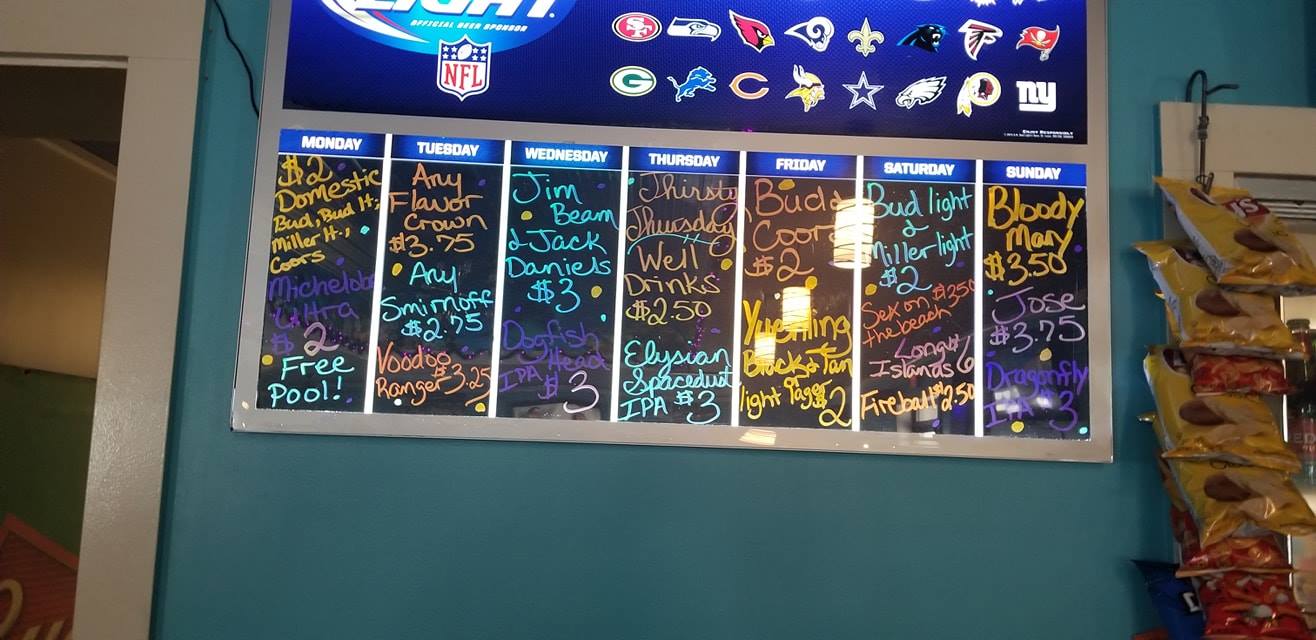 LIGHT.
OFFICIAL BEER SPONSOR
NFL
G
C
ny
ENJOY RESPONSIBLY
MONDAY
$2
Domestic
Bud, Bud lt;
Miller lt.,
Coors
Michelob
Ultra
$2
Free
Pool!
TUESDAY
Any
Flavor
Crown
$3.75
Any
Smirnoff
$2.75
Voodoo
Ranger $3.25
WEDNESDAY
Jim
Beam
& Jack
Daniels
$3
Dogfish
Head
IPA
$3
THURSDAY
Thirsty
Thursday
Well
Drinks
$2.50
Elysian
Spacedust
IPA $3
FRIDAY
Bud &
Coors
$2
Yuengling
Black & Tan
or
light lager $2
SATURDAY
Bud light
&
Miller light
$2
Sex on $3.50
the beach
Long
Islands 6
Fireball $2.50
SUNDAY
Bloody
Mary
$3.50
Jose
$3.75
Dragonfly
IPA 3